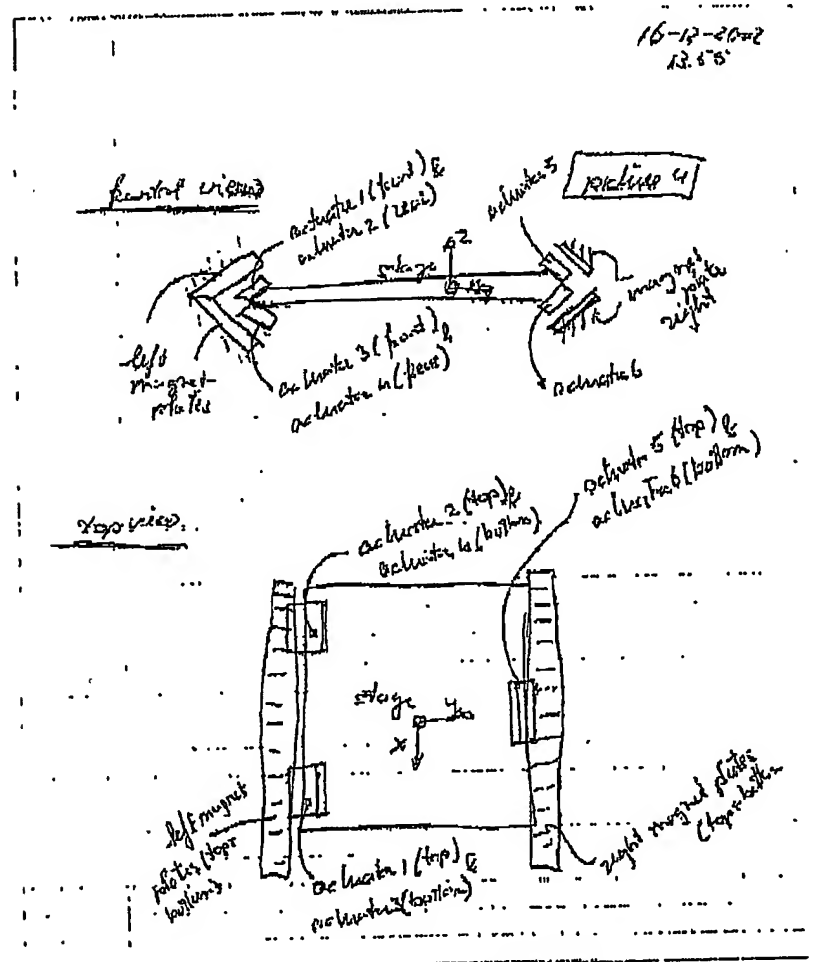 13.55
picture 4
actuator 1 (front) &
actuator 2 (rear)
actuator 5
z
stage
y
magnet
plates
right
left
magnet
plates
actuator 3 (front) &
actuator 4 (rear)
actuator 6
top view
actuator 2 (top) &
actuator 4 (bottom)
actuator 5 (top) &
actuator 6 (bottom)
stage
y
x
left magnet
plates (top &
bottom)
actuator 1 (top) &
actuator 3 (bottom)
right magnet plates
(top & bottom